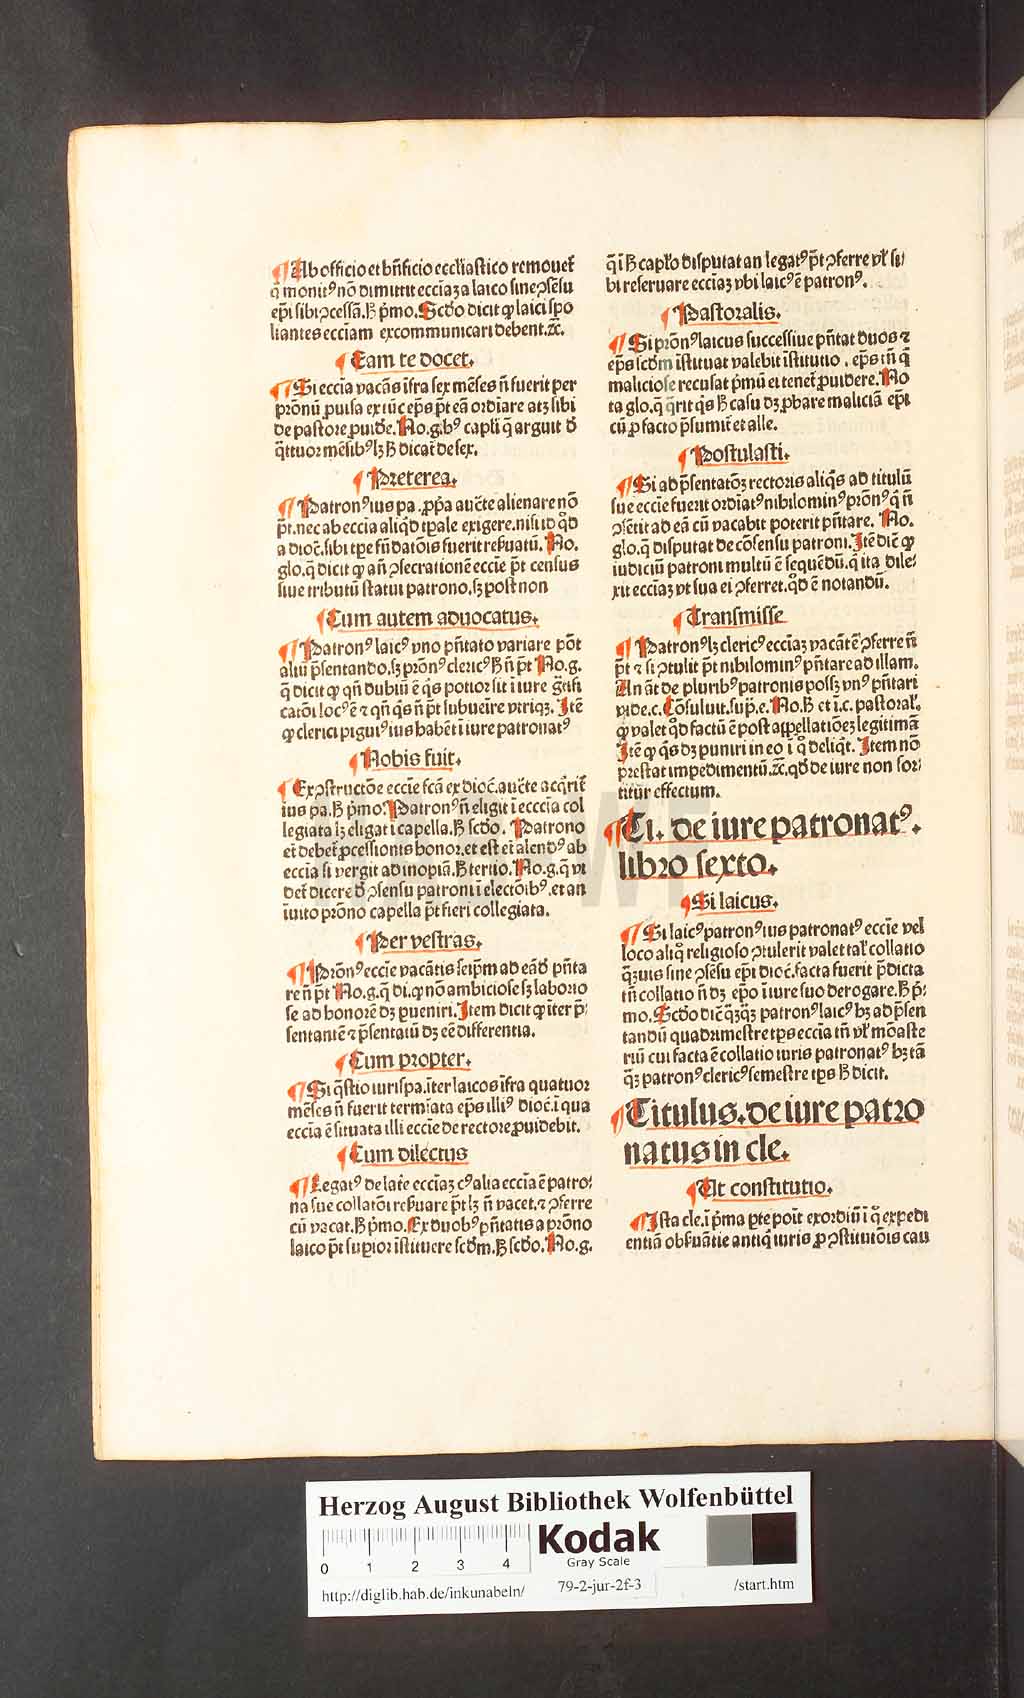 ¶ Ab officio et bn̄ficio eccl̓iastico remouet᷑
q̄ monit⁹ nō dimittit eccīaȝ a laico sine ꝯsēsu
ep̄i sibi ꝯcessā. ħ p̄mo. Scd̄o dicit ꝙ laici spo
liantes eccīam excommunicari debent. ⁊c̄.
¶ Eam te docet.
¶ Si eccīa vacās īfra sex mēses n̄ fuerit per
pr̄onū ꝓuisa ex tūc ep̄s p̄t eā ordīare atȝ sibi
de pastore ꝓuid̄e. No. g. b⁹ capl̓i q̄ arguit ď
q̄ttuor mēsib⁹ lȝ ħ dicat᷑ de sex.
¶ Preterea.
¶ Patron⁹ ius pa. ꝓp̄a auc̄te alienare nō
p̄t. nec ab eccīa aliq̊d tp̄ale exigere. nisi id q̊d
a dioc̄. sibi tp̄e fn̄datōis fuerit reẜuatū. No.
glo. q̄ dicit ꝙ an̄ ꝯsecrationē eccīe p̄t census
siue tributū statui patrono. sȝ post non
¶ Cum autem aduocatus.
¶ Patron⁹ laic⁹ vno pn̄tato variare pōt
aliū p̄sentando. sȝ pr̄on⁹ cleric⁹ ħ n̄ p̄t No. g.
q̄ dicit ꝙ qn̄ dubiū ē q̇s potior sit ī iure
catōi loc⁹ ē ⁊ qn̄ q̇s n̄ p̄t subueīre vtriqȝ. Itē
ꝙ clerici pigui⁹ ius habēt ī iure patronat⁹
¶ Nobis fuit.
¶ Ex ꝯstructōe eccīe fcā ex dioc̄. auc̄te acq̇rit᷑
ius pa. ħ p̄mo. Patron⁹ n̄ eligit ī ecccīa col
legiata lȝ eligat ī capella. ħ scd̄o. Patrono
et̄ debet᷑ ꝓcessionis honor. et est et̄ alend⁹ ab
eccīa si vergit ad inopiā. ħ tertio. No. g. q̄ vi
det᷑ dicere ď ꝯsensu patroni ī electōib⁹. et an
īuito pr̄ono capella p̄t fieri collegiata.
¶ Per vestras.
¶ Pr̄on⁹ eccīe vacātis seip̄m ad eād̄ pn̄ta
re n̄ p̄t No. g. q̄ di. ꝙ nō ambiciose sȝ laborio
se ad honorē dȝ ꝑueniri. Item dicit ꝙ īter p̄
sentantē ⁊ p̄sentatū dȝ eē differentia.
¶ Cum propter.
¶ Si q̄stio iurispa. īter laicos īfra quatuor
mēses n̄ fuerit termīata ep̄s illi⁹ dioc̄. ī qua
eccīa ē situata illi eccīe de rectore ꝓuidebit.
¶ Cum dilectus
¶ Legat⁹ de late eccīaȝ c⁹ alia eccīa ē patro
na sue collatōi reẜuare p̄t lȝ n̄ vacet. ⁊ ꝯferre
cū vacat. ħ p̄mo. Ex duob⁹ pn̄tatis a pr̄ono
laico p̄t suꝑior īstituere scd̄m. ħ scd̄o. No. g.
q̄ ī ħ cap̄lo disputat an legat⁹ p̄t ꝯferre vl̓ si
bi reseruare eccīaȝ vbi laic⁹ ē patron⁹.
¶ Pastoralis.
¶ Si pr̄on⁹ laicus successiue pn̄tat duos ⁊
ep̄s scd̄m īstituat valebit īstitutio. ep̄s tn̄ q̄
maliciose recusat p̄mū ei tenet᷑ ꝓuidere. No
ta glo. q̄ q̄rit q̇s ħ casu dȝ ꝓbare maliciā ep̄i
cū ꝓ facto p̄sumit᷑ et alle.
¶ Postulasti.
¶ Si ad p̄sentatōȝ rectoris aliq̇s ad titulū
sue eccīe fuerit ordīat⁹ nihilomin⁹ pr̄on⁹ q̄ n̄
ꝯsētit ad eā cū vacabit poterit pn̄tare. No.
glo. q̄ disputat de cōsensu patroni. Itē dic̄ ꝙ
iudiciū patroni multū ē sequēdū. q̄ ita dile
xit eccīaȝ vt sua ei ꝯferret. q̊d ē notandū.
¶ Transmisse
¶ Patron⁹ lȝ cleric⁹ eccīaȝ vacātē ꝯferre n̄
p̄t ⁊ si ꝯtulit p̄t nihilomin⁹ pn̄tare ad illam.
An āt de plurib⁹ patronis possȝ vn⁹ pn̄tari
vide. c. Cōsuluit. sup̄. e. No. ħ et i. c. pastoral̓.
ꝙ valet q̊d factū ē post appellatiōeȝ legitimā
Itē ꝙ q̇s dȝ puniri in eo ī q̊ deliq̇t. Item nō
prestat impedimentū. ⁊c̄. qd̄ de iure non sor
titur effectum.
¶ Ti. de iure patronat⁹.
libro sexto.
¶ Si laicus.
¶ Si laic⁹ patron⁹ ius patronat⁹ eccīe vel
loco aliq̊ religioso ꝯtulerit valet tal̓ collatio
q̄ȝuis sine ꝯsēsu ep̄i dioc̄. facta fuerit p̄dicta
tn̄ collatio n̄ dȝ ep̄o ī iure suo derogare. ħ p̄
mo. Scd̄o dic̄ q̄ȝq̄ȝ patron⁹ laic⁹ hȝ ad p̄sen
tandū quadrimestre tp̄s eccīa tn̄ vl̓ mōaste
riū cui facta ē collatio iuris patronat⁹ hȝ tā
q̄ȝ patron⁹ cleric⁹ semestre tp̄s ħ dicit.
¶ Titulus. de iure patro
natus in cle.
¶ Ut constitutio.
¶ Ista cle. ī p̄ma ꝑte poīt exordiū ī q̊ expedi
entiā obẜuātie antiq̇ iuris ꝓ ꝯstitutōis cau
Herzog August Bibliothek Wolfenbüttel
0 1 2 3 4
Kodak
Gray Scale
http://diglib.hab.de/inkunabeln/ 79-2-jur-2f-3 /start.htm